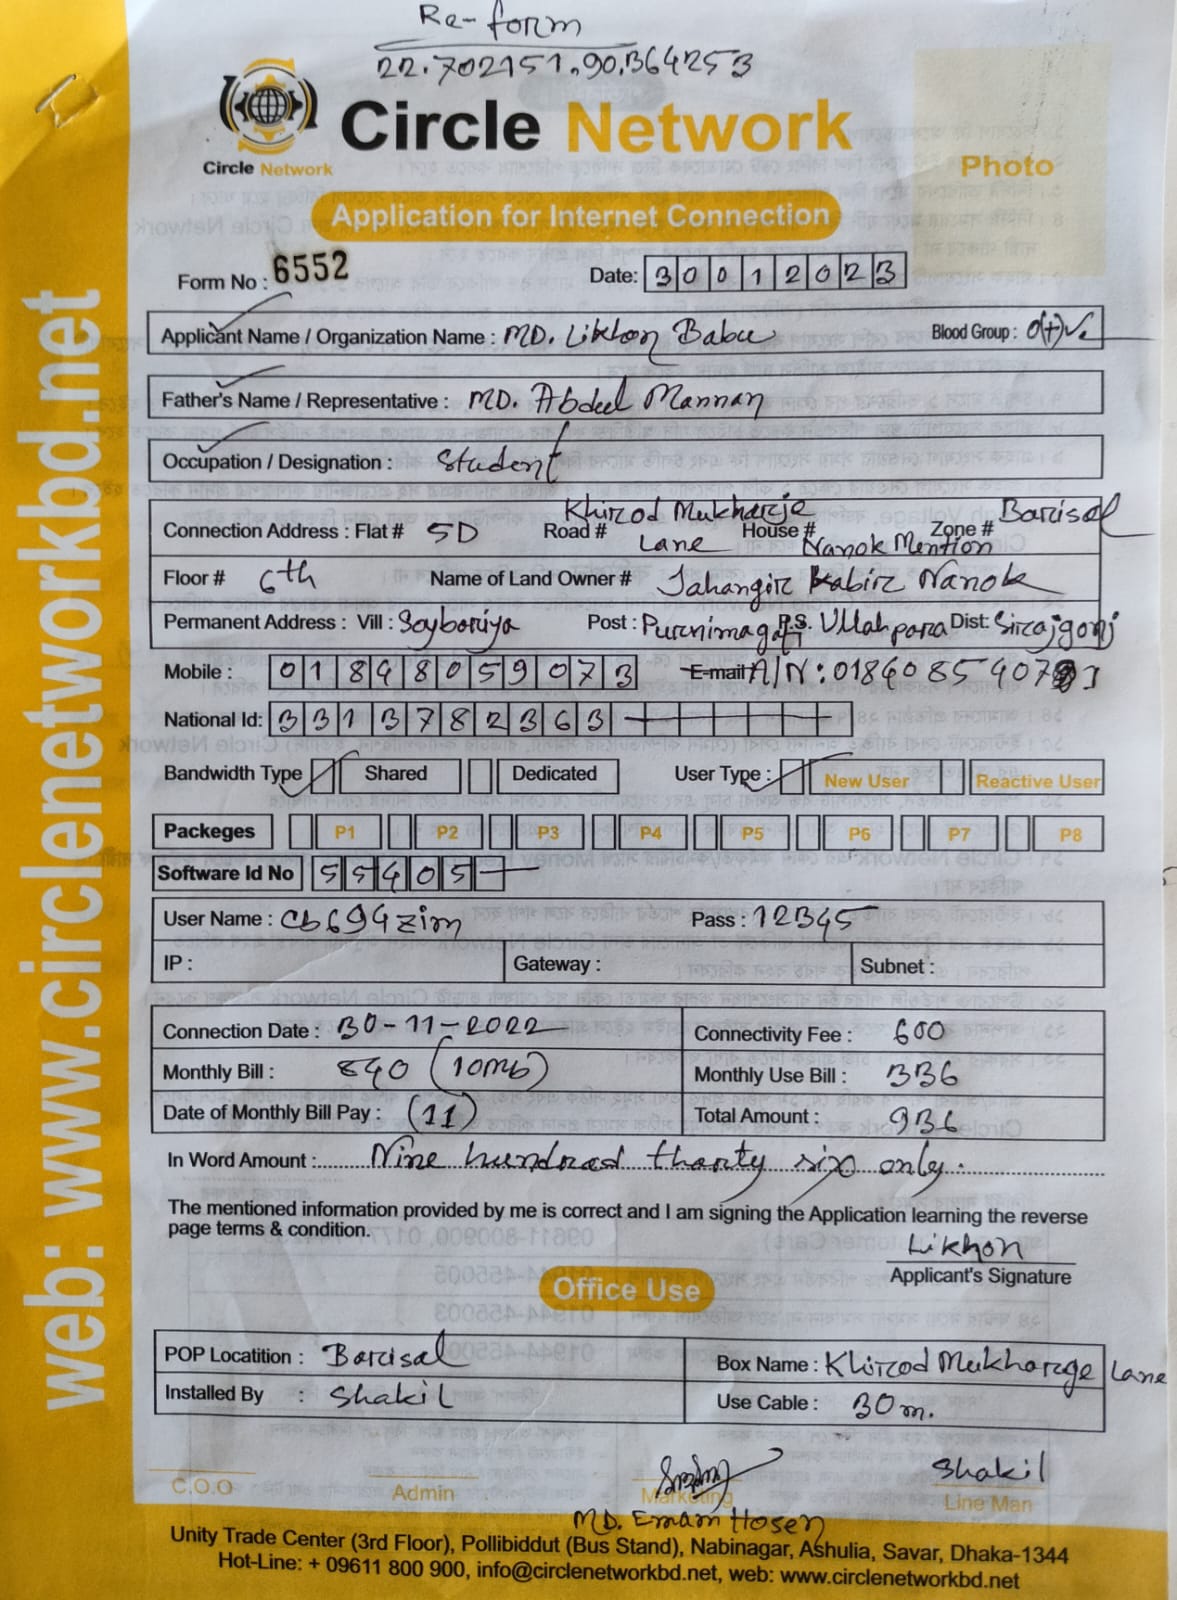 Re-form
22.702151.90.364253
Circle Network
Circle Network
Photo
Application for Internet Connection
Form No : 6552
Date: 30012023
Applicant Name / Organization Name : MD. Likhon Babu
Blood Group : O(+)ve
Father's Name / Representative : MD. Abdul Mannan
Occupation / Designation : Student
Connection Address : Flat # 5D Road # Khirod Mukharje Lane House # Nanok Mention Zone # Barisal
Floor # 6th Name of Land Owner # Jahangir Kabir Nanok
Permanent Address : Vill : Soyboriya Post : Purnimagati P.S. Ullahpara Dist: Sirajgonj
Mobile : 01848059073 E-mail A/N: 0186085407
National Id: 3313782363
Bandwidth Type Shared Dedicated User Type : New User Reactive User
Packeges P1 P2 P3 P4 P5 P6 P7 P8
Software Id No 55405
User Name : cb694zim Pass : 12345
IP : Gateway : Subnet :
Connection Date : 30-11-2022 Connectivity Fee : 600
Monthly Bill : 840 (10mb) Monthly Use Bill : 336
Date of Monthly Bill Pay : (11) Total Amount : 936
In Word Amount : Nine hundrad tharty six only.
The mentioned information provided by me is correct and I am signing the Application learning the reverse
page terms & condition.
Likhon
Applicant's Signature
Office Use
POP Locatition : Barisal Box Name : Khirod Mukharge Lane
Installed By : Shakil Use Cable : 30m.
Shakil
C.O.O Admin Marketing Line Man
MD. Emam Hosen
Unity Trade Center (3rd Floor), Pollibiddut (Bus Stand), Nabinagar, Ashulia, Savar, Dhaka-1344
Hot-Line: + 09611 800 900, info@circlenetworkbd.net, web: www.circlenetworkbd.net
web: www.circlenetworkbd.net